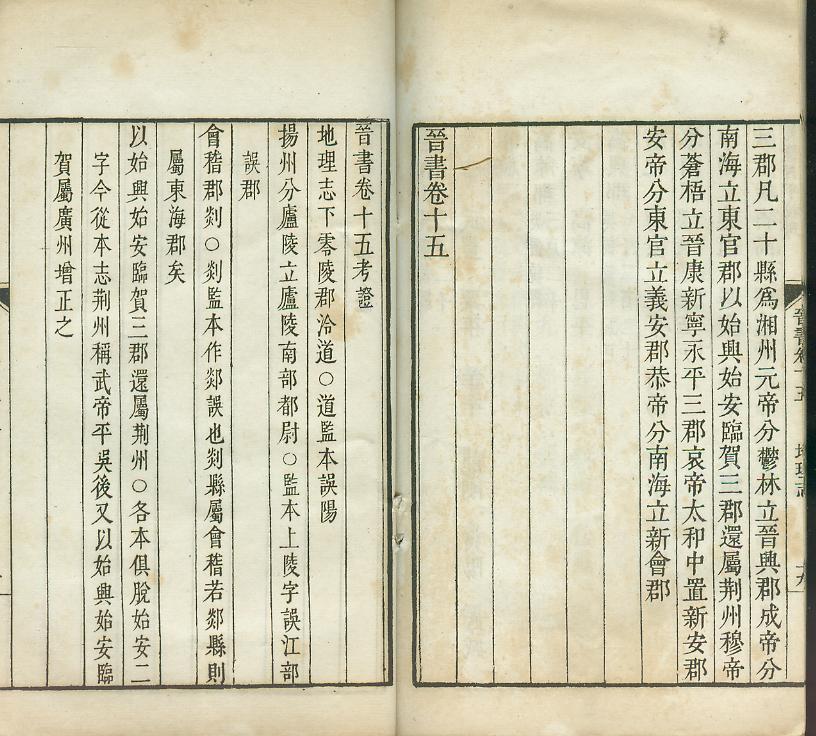 三郡凡二十縣爲湘州元帝分鬱林立晉興郡成帝分
南海立東官郡以始興始安臨賀三郡還屬荆州穆帝
分蒼梧立晉康新寧永平三郡哀帝太和中置新安郡
安帝分東官立義安郡恭帝分南海立新會郡
晉書卷十五
晉書卷十五考證
地理志下零陵郡泠道○道監本誤陽
揚州分廬陵立廬陵南部都尉○監本上陵字誤江部
誤郡
會稽郡剡○剡監本作郯誤也剡縣屬會稽若郯縣則
屬東海郡矣
以始興始安臨賀三郡還屬荆州○各本俱脫始安二
字今從本志荆州稱武帝平吳後又以始興始安臨
賀屬廣州增正之